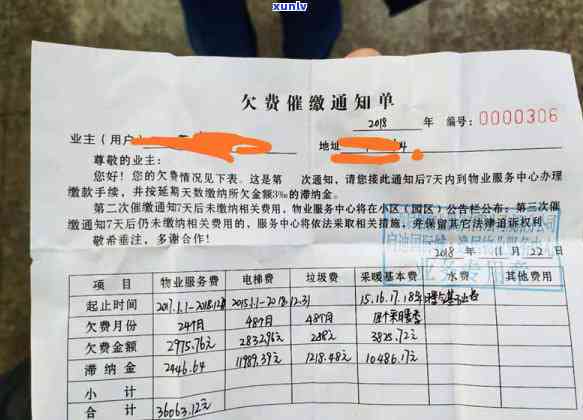 xunlv
欠费催缴通知单
2018 年 编号: 0000306
业主(用户) 地址
尊敬的业主:
您好! 您的欠费情况见下表。这是第 次通知, 请您接此通知后7天内到物业服务中心办理
缴款手续, 并按延期天数缴纳所欠金额3‰的滞纳金。
第二次催缴通知7天后未缴纳相关费用, 物业服务中心将在小区(园区)公告栏公布; 第三次催
缴通知7天后仍未缴纳费用的, 服务中心将依法采取相关措施, 并保留其它法律追诉权利。
敬希垂注, 多谢合作!
2018 年 11 月 22 日
项目 物业服务费 电梯费 垃圾费 采暖基本费 水费 其他费用
起止时间 2017.1.1-2018.12.31 2015.1.1-2018.12.31 15.16.17.18年
欠费月份 24个月 48个月 48个月
欠费金额 2975.76元 2832.96元 288元 3825.72元
滞纳金 2446.64 11989.39元 1218.48元 10486.17元
小计
合计 36063.12元